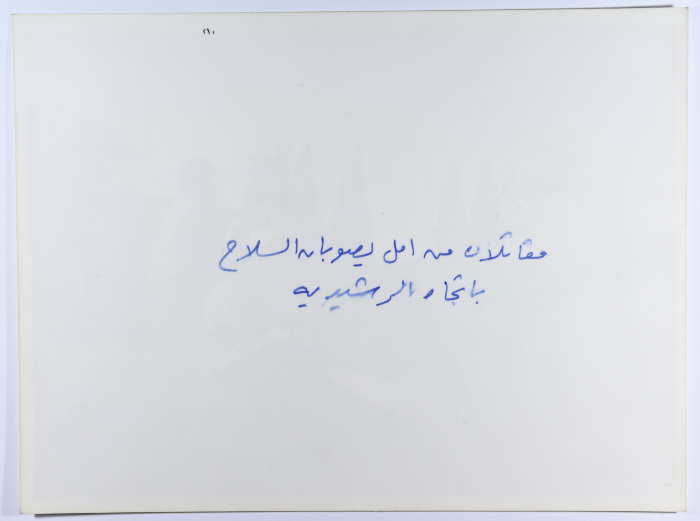 مقاتلان من امل يصوبان السلاح
باتجاه الرشيديه